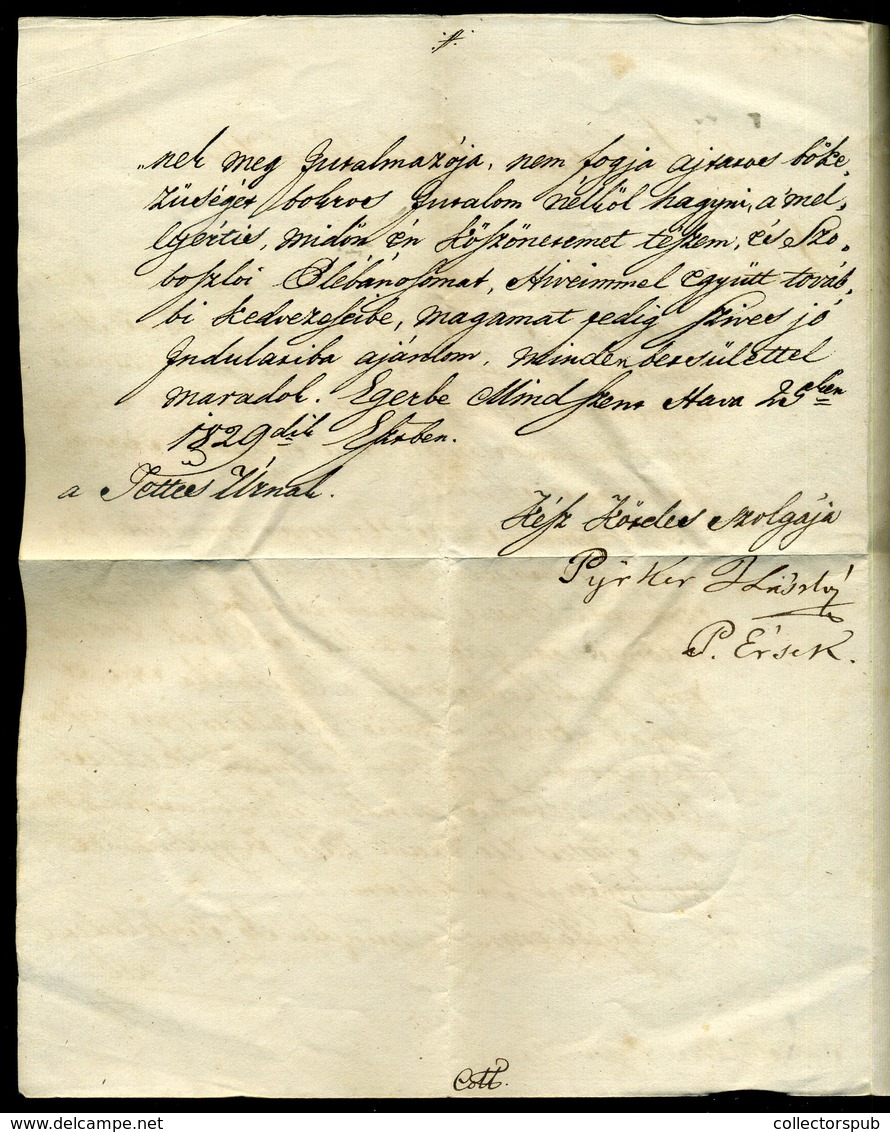 .//.
„nek meg Jutalmazója, nem fogja ajtatos böke-
zűségét bokros Jutalom nélkül hagyni, a' mel-
lyértis, midőn én Köszönetemet tészem, és Szo-
boszloi Plébánosomat, Hiveimmel együtt továb-
bi kedvezéseibe, magamat pedig szíves jó
Indulatiba ajánlom, minden becsülettel
maradok. Egerbe Mind Szent Hava 25ikben
1829dik Esztben.
a Töttes Úrnak.
Kész Köteles szolgája
Pyrker J László
P. Érsek.
Coll.
collectorspub